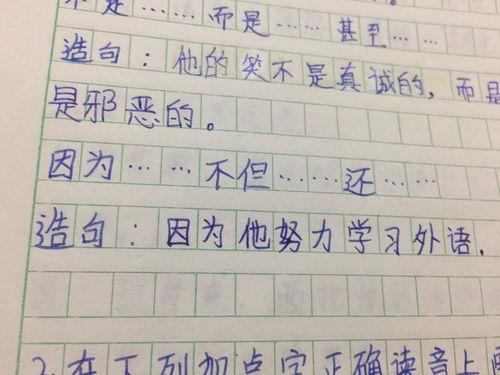 不是……而是……甚至……
造句：他的笑不是真诚的，而是
是邪恶的。
因为……不但……还……
造句：因为他努力学习外语，
2.在下列加点字正确读音上